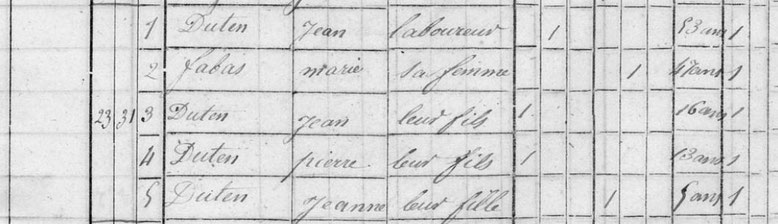 1 Duten Jean laboureur 1 53 ans 1
2 fabas marie sa femme 1 47 ans 1
23 31 3 Duten Jean leur fils 1 16 ans 1
4 Duten pierre leur fils 1 13 ans 1
5 Duten Jeanne leur fille 1 5 ans 1